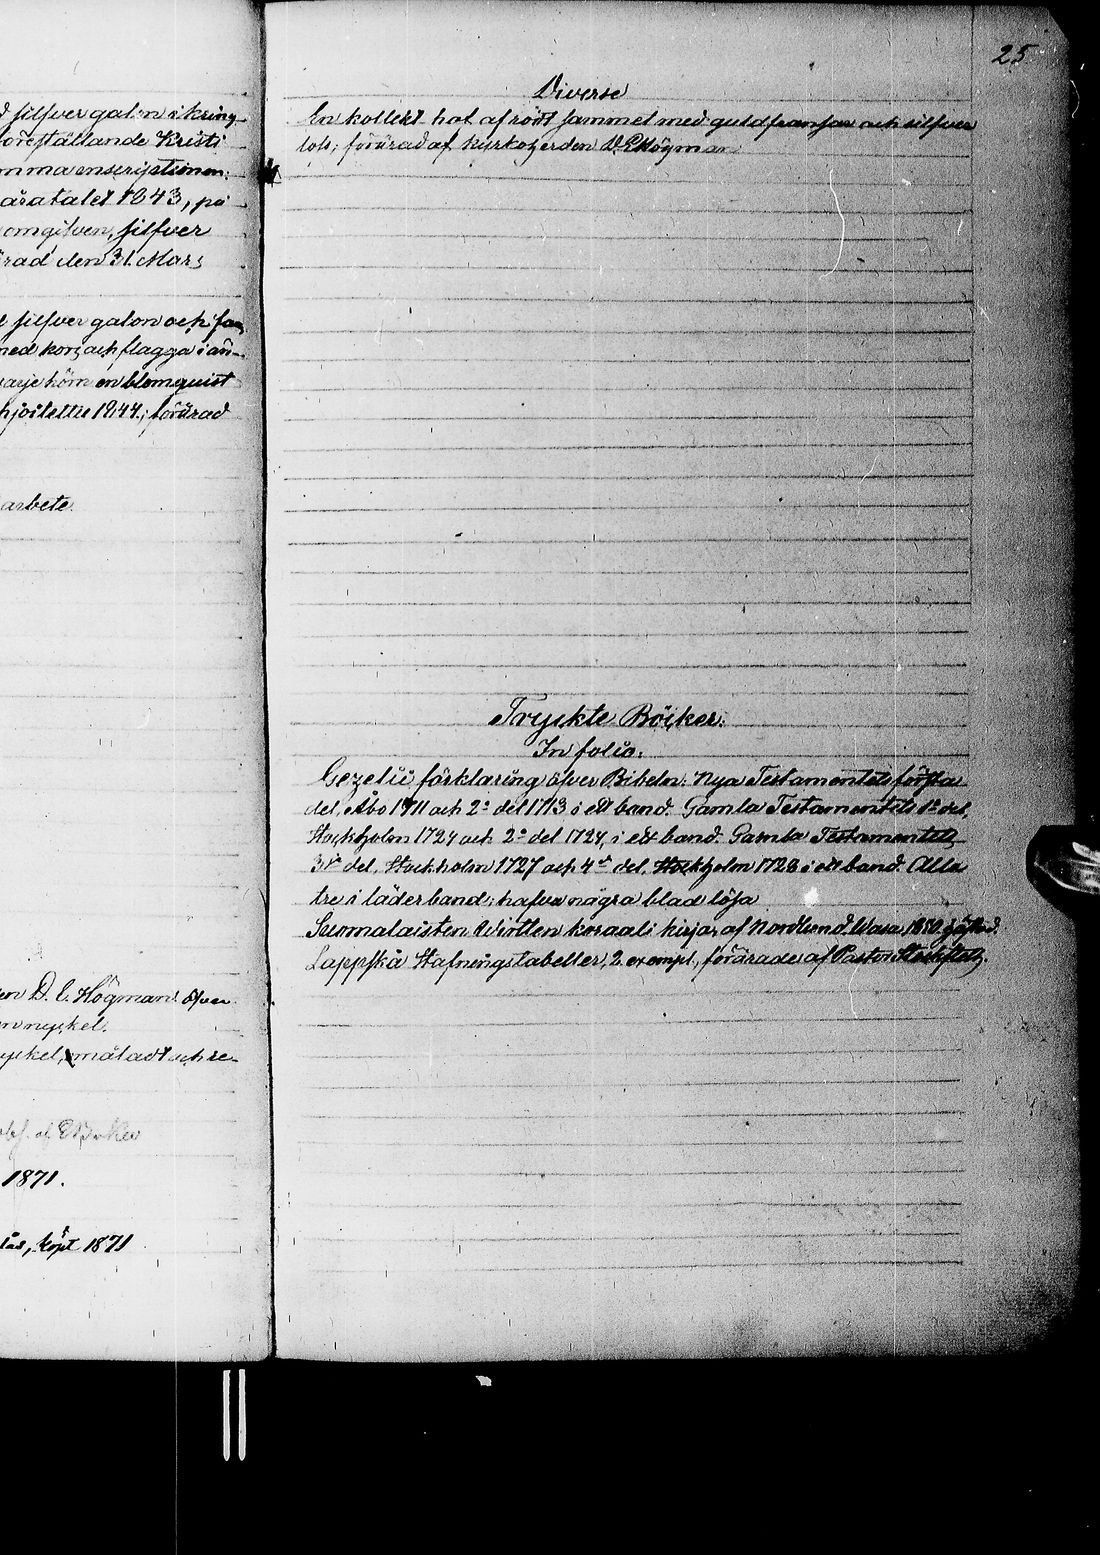 d silfver galon ikring
föreställande Kristi
mma enscriptionen:
åratalet 1843, på
omgifven, silfver
rad den 31. Mars
silfver galon och fa
med kors och flagga i än-
varje hörn en blomquist
1844; förärad
arbete.
en D. E. Högman öfver
nyckel.
nyckel, måladt och re-
1871.
lås, köpt 1871
25
Diverse
En kollekt håf af rödt sammet med guldfransar och silfver
tofs; förärad af Kyrkoherden D. E. Högman
Tryckte Böcker.
In folio.
Gezelii förklaring öfver Bibeln: Nya Testamentets första
del, Åbo 1711 och 2a del 1713 i ett band. Gamla Testamentets 1a del,
Stockholm 1724 och 2a del 1724, i ett band. Gamla Testamentets
3de del, Stockholm 1727 och 4de del, Stockholm 1728 i ett band. Alla
tre i läderband; hafva några blad lösa
Suomalaisten Wirtten koraali kirja, af Nordlund. Wasa 1850. häftad.
Lappska Stafningstabeller, 2 exempl., förärade af Pastor Stockfleth.